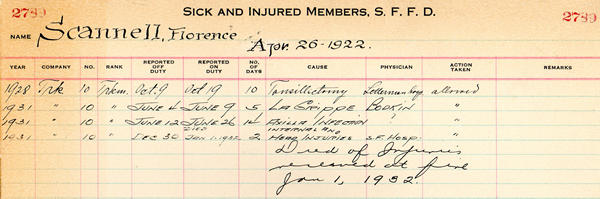 2789 SICK AND INJURED MEMBERS, S. F. F. D. 2789
NAME Scannell, Florence Apr. 26-1922.
YEAR COMPANY NO. RANK REPORTED OFF DUTY REPORTED ON DUTY NO. OF DAYS CAUSE PHYSICIAN ACTION TAKEN REMARKS
1928 Trk 10 Trkm. Oct. 9 Oct 19 10 Tonsillectomy Letterman hosp allowed
1931 " 10 " JUNE 4 JUNE 9 5 LA GRIPPE BODKIN "
1931 " 10 " JUNE 12 JUNE 26 14 AXILLA INFECTION " "
1931 " 10 " DEC 30 DIED JAN 1, 1932 2 INTERNAL AND HEAD INJURIES S.F. HOSP. "
Died of Injuries
received at fire
Jan 1, 1932.